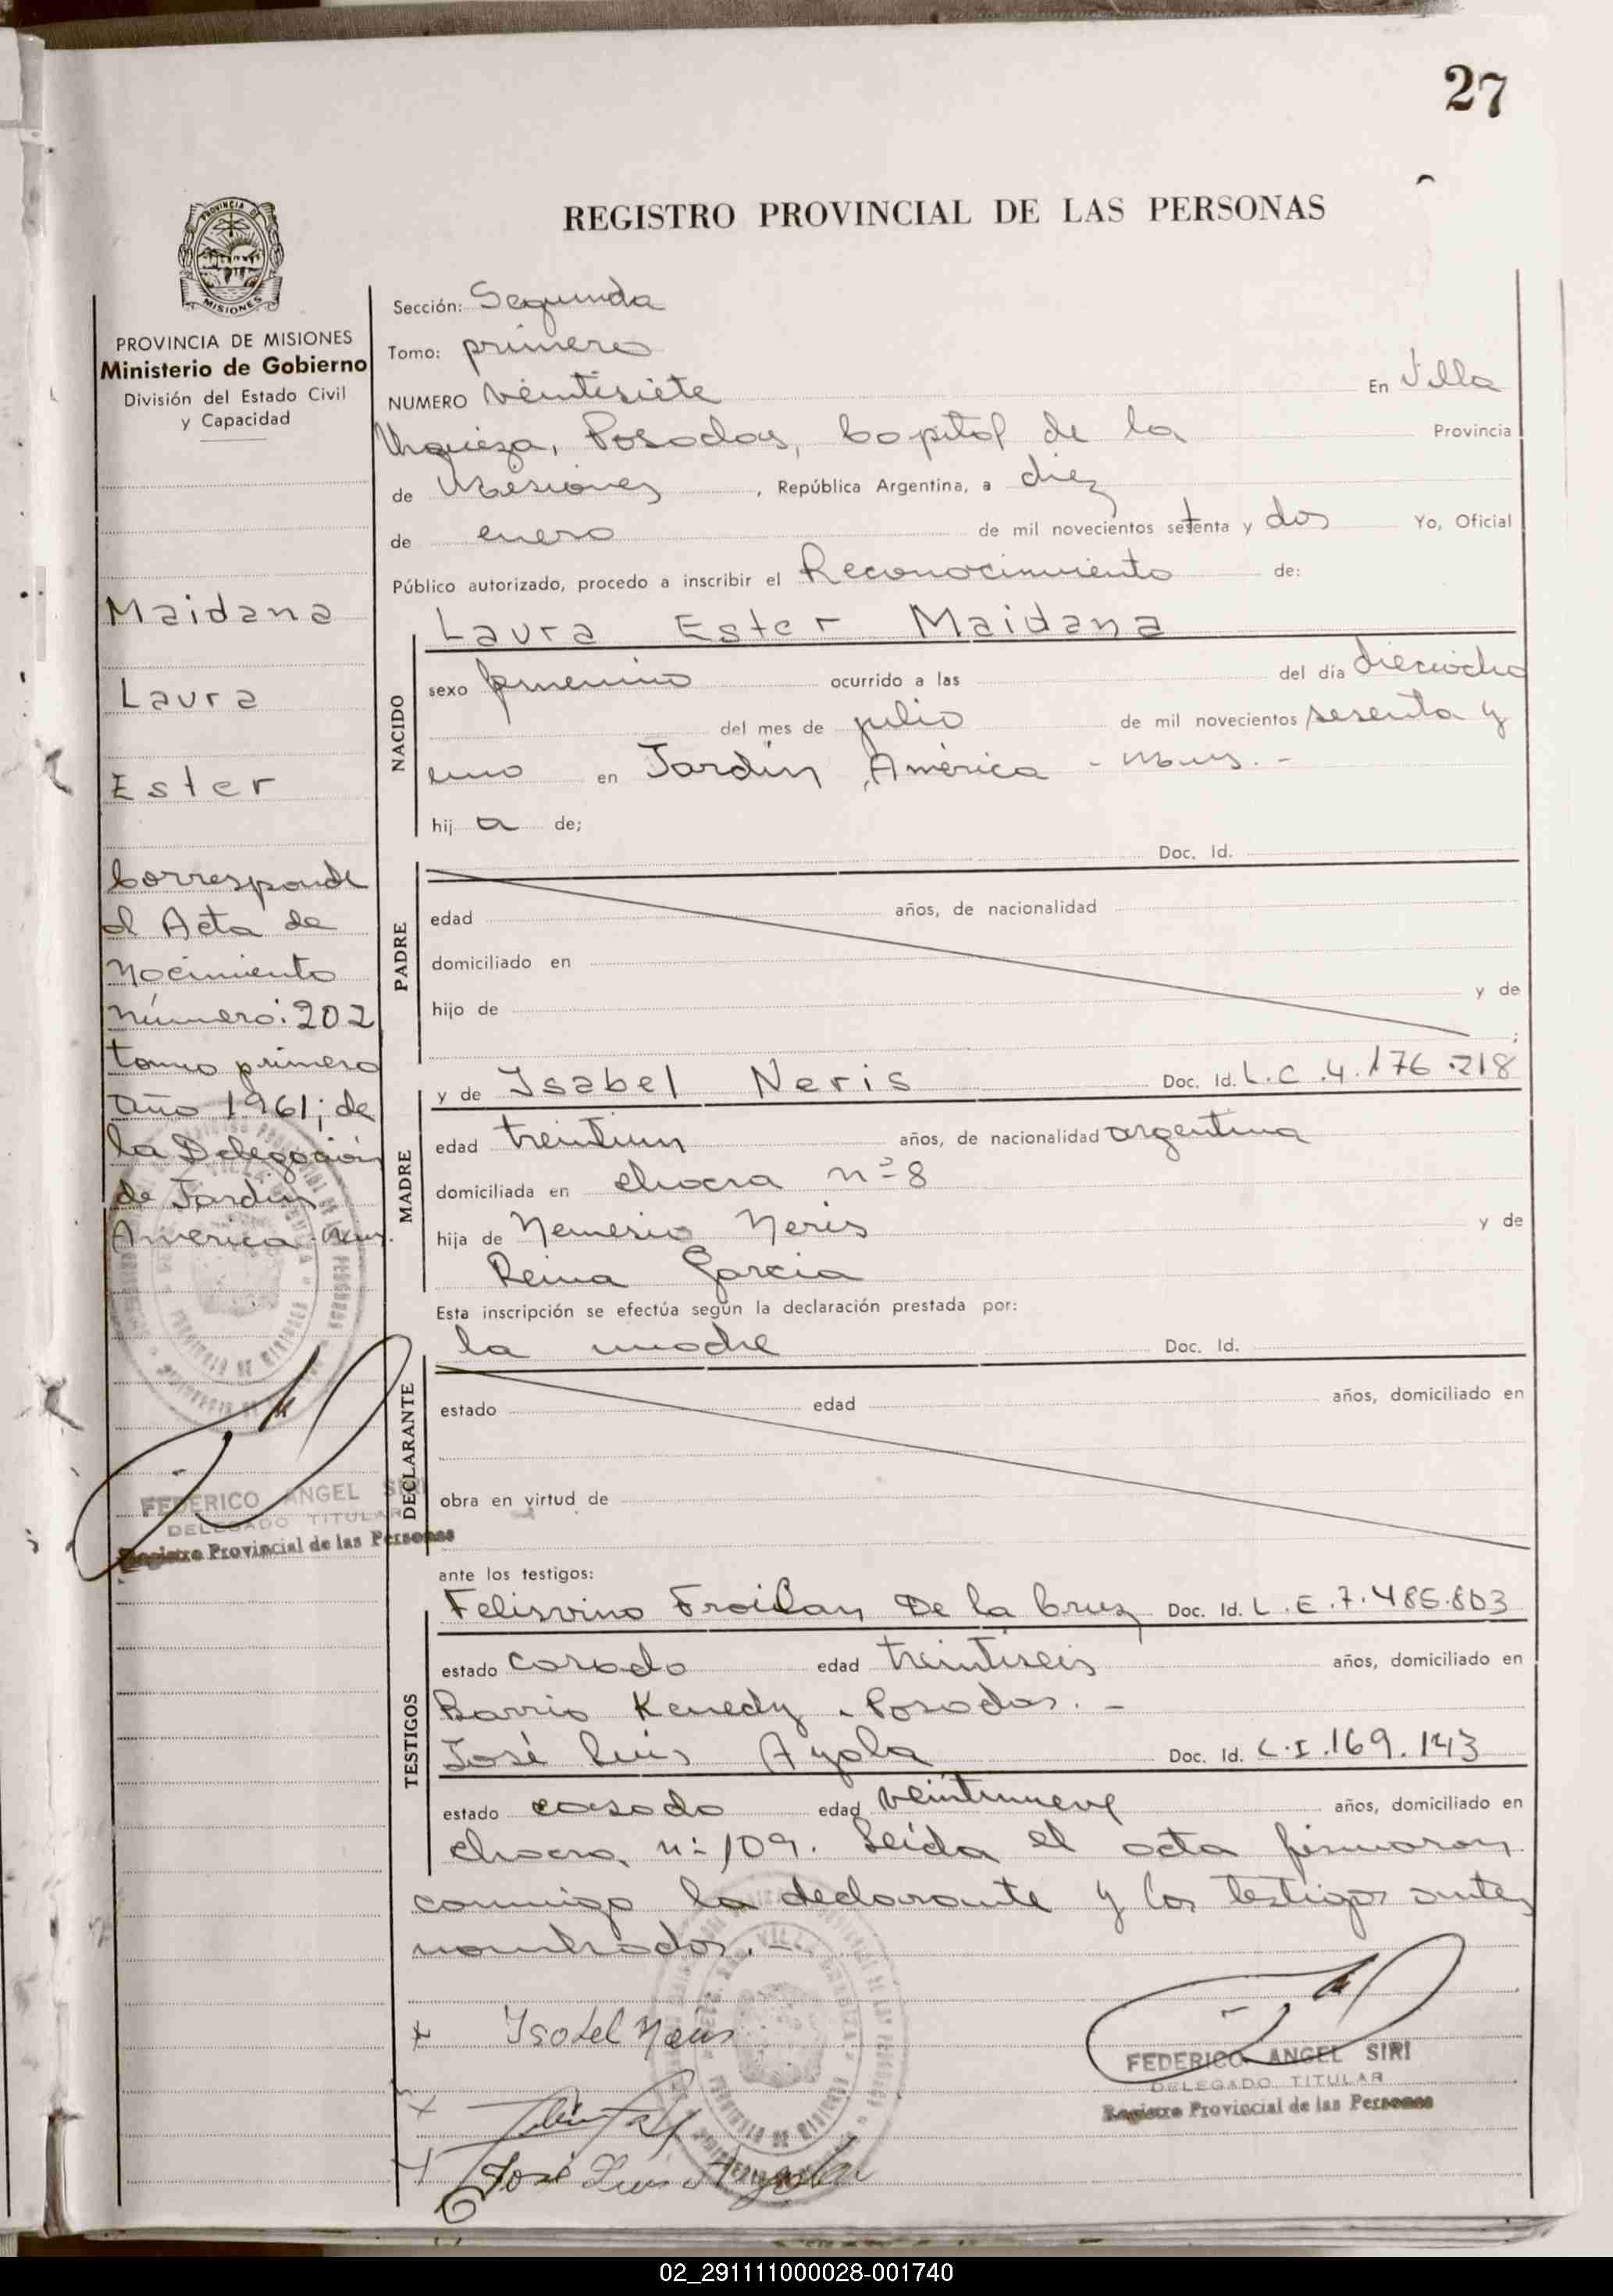 27
REGISTRO PROVINCIAL DE LAS PERSONAS
PROVINCIA DE MISIONES
PROVINCIA DE MISIONES
Ministerio de Gobierno
División del Estado Civil
y Capacidad
Maidana
Laura
Ester
Corresponde
al Acta de
Nacimiento
número: 202
tomo primero
año 1961; de
la Delegación
de Jardín
América - Mnes.
FEDERICO ANGEL SIRI
DELEGADO TITULAR
Registro Provincial de las Personas
Sección: Segunda
Tomo: primero
NUMERO veintisiete En Villa
Urquiza, Posadas, Capital de la Provincia
de Misiones, República Argentina, a diez
de enero de mil novecientos setenta y dos Yo, Oficial
Público autorizado, procedo a inscribir el Reconocimiento de:
NACIDO
Laura Ester Maidana
sexo femenino ocurrido a las del día dieciocho
del mes de julio de mil novecientos sesenta y
uno en Jardín América - Mnes. -
hij a de;
Doc. Id.
PADRE
edad años, de nacionalidad
domiciliado en
hijo de y de
;
MADRE
y de Isabel Neris Doc. Id. L.C. 4.176.218
edad treintiun años, de nacionalidad argentina
domiciliada en chacra nº 8
hija de Nemesio Neris y de
Reina Garcia
Esta inscripción se efectúa según la declaración prestada por:
la madre Doc. Id.
DECLARANTE
estado edad años, domiciliado en
obra en virtud de
ante los testigos:
TESTIGOS
Felisvino Froilan De la Cruz Doc. Id. L.E. 7.485.803
estado casado edad treintiseis años, domiciliado en
Barrio Kenedy - Posadas. -
José Luis Ayala Doc. Id. C.I. 169.143
estado casado edad veintinueve años, domiciliado en
chacra nº 109. Leída el acta firmaron
conmigo la declarante y los testigos antes
nombrados. -
x Isabel Neris
x
x José Luis Ayala
FEDERICO ANGEL SIRI
DELEGADO TITULAR
Registro Provincial de las Personas
02_291111000028-001740